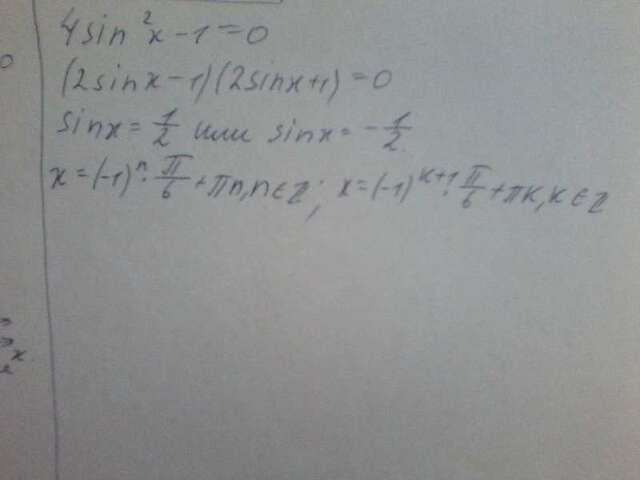 4sin²x-1=0
(2sinx-1)(2sinx+1)=0
sinx=1/2 или sinx=-1/2
x=(-1)ⁿ·π/6+πn,n∈Z; x=(-1)ᵏ⁺¹·π/6+πk,k∈Z
x